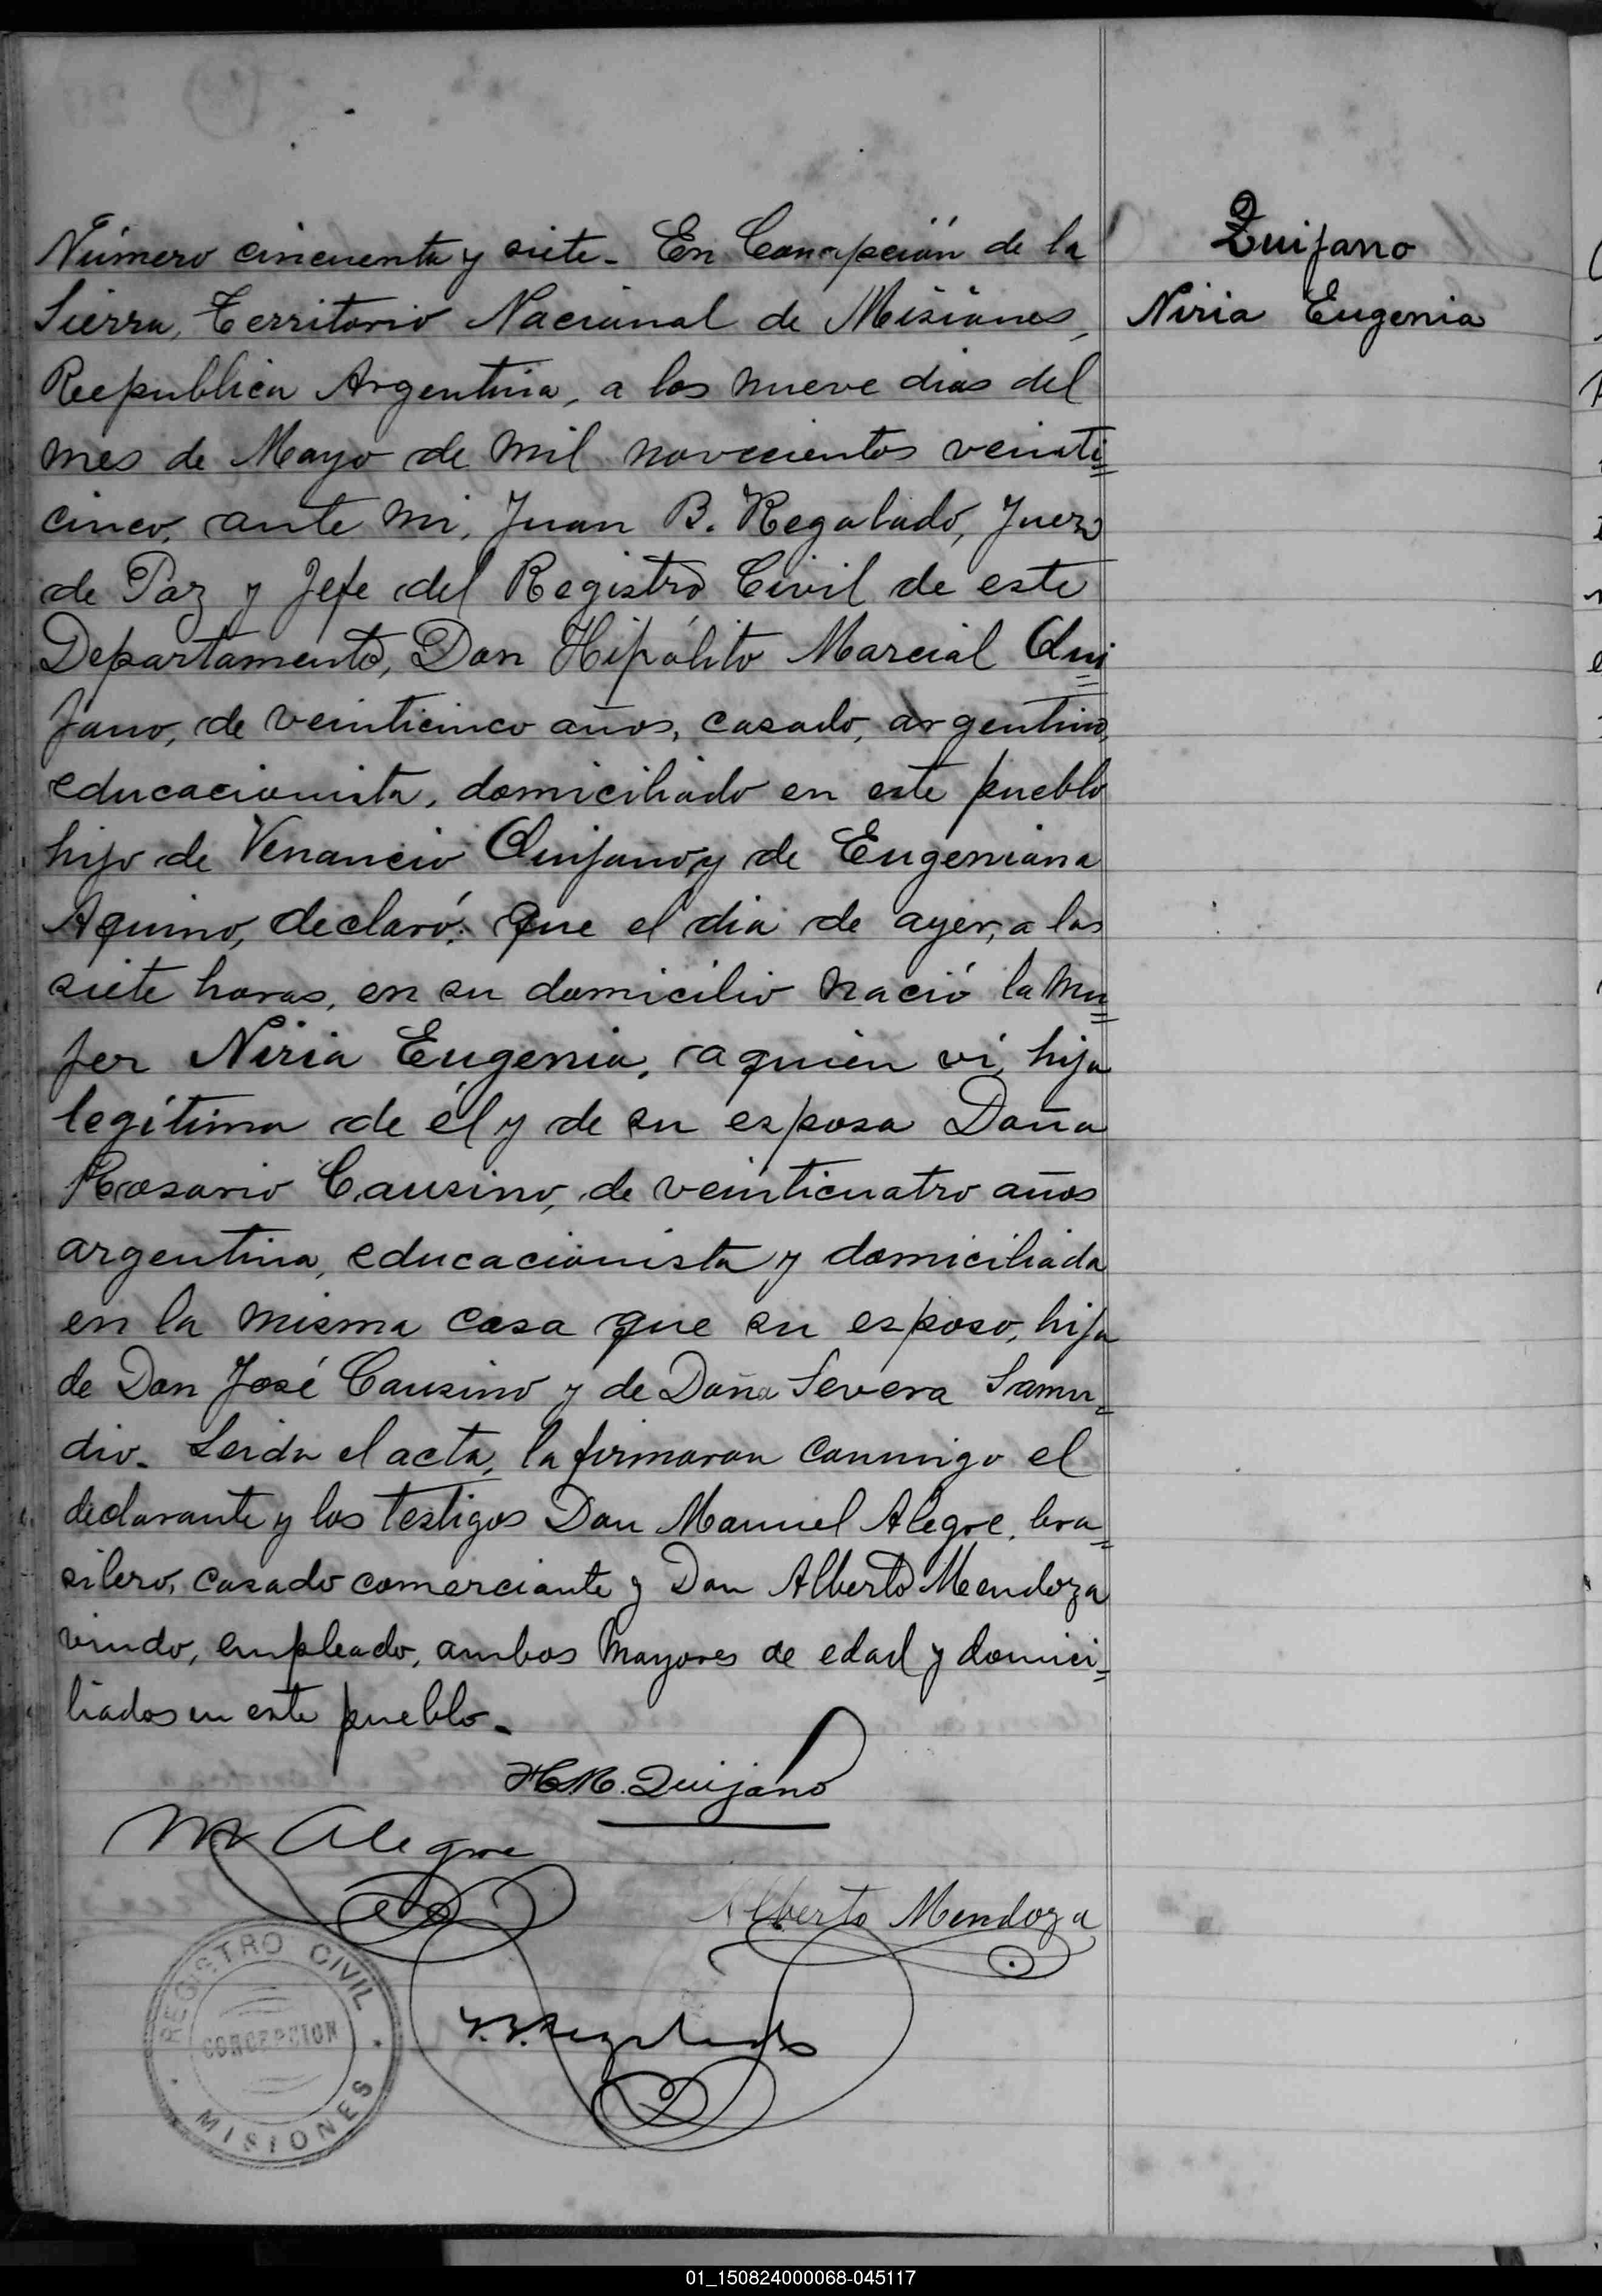 Número cincuenta y siete_ En Concepción de la
Sierra, Territorio Nacional de Misiones,
Reepublica Argentina, a los nueve dias del
mes de Mayo de mil novecientos veinti=
cinco, ante mi, Juan B. Regalado, Juez
de Paz y Jefe del Registro Civil de este
Departamento, Don Hipólito Marcial Qui=
jano, de veinticinco años, casado, argentino,
educacionista, domiciliado en este pueblo
hijo de Venancio Quijano y de Eugeniana
Aquino, declaró: Que el dia de ayer, a las
siete horas, en su domicilio nació la mu=
jer Niria Eugenia, a quien vi, hija
legítima de él y de su esposa Doña
Rosario Causino, de veinticuatro años
argentina, educacionista y domiciliada
en la misma casa que su esposo, hija
de Don José Causino y de Doña Severa Samu=
dio_ Leida el acta, la firmaron conmigo el
declarante y los testigos Don Manuel Alegre, bra=
silero, casado comerciante y Don Alberto Mendoza
viudo, empleado, ambos mayores de edad y domici=
liados en este pueblo_
H.M. Quijano
M Alegre
Alberto Mendoza
J.B. Regalado
REGISTRO CIVIL
CONCEPCION
MISIONES
Quijano
Niria Eugenia
01_150824000068-045117